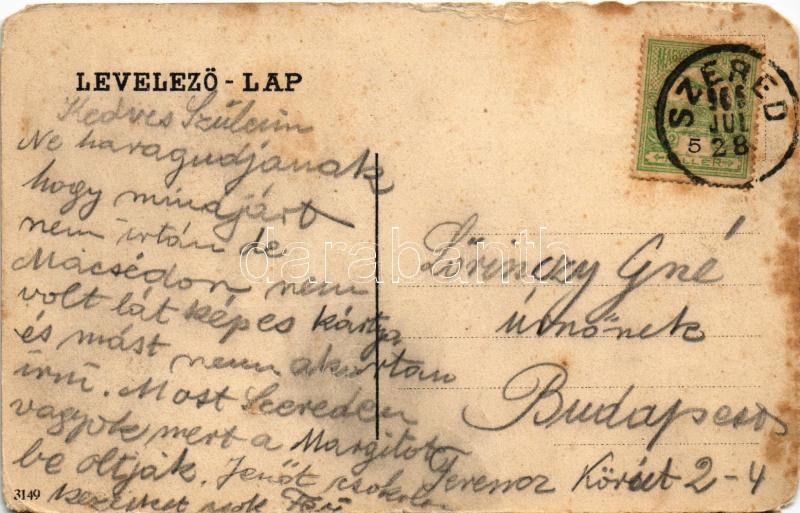 LEVELEZŐ - LAP
Kedves Szüleim
Ne haragudjanak
hogy minajárt
nem irtán de
Mácsédon nem
volt lát képes kártya
és mást nem akartam
irni. Most Szereden
vagyok mert a Margitot
be oltják. Jenőt csokolom
3149
SZERED
906
JUL
28
5
FILLÉR
Lörinczy Gné
úrnőnek
Budapest
Ferencz Körút 2-4
darabanth.com